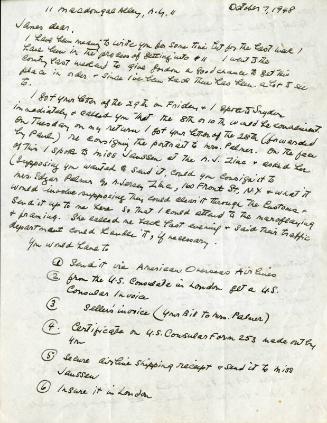 11 Macdougal Alley, N.Y. 11
October 7, 1948
James dear.
I have been meaning to write you for some time but for the last week I
have been in the process of getting into # 11 I went to the
Country last weekend to give Gordon a good chance to get this
place in order & since I've been back there has been a lot to see
to.
I got your letter of the 29th on Friday, & I spoke to Snyder
immediately & cabled you that the 8th or 10th would be convenient
On Tuesday on my return I got your letter of the 28th (forwarded
by Paul) re consigning the portrait to Mrs. Palmer. On the face
of this I spoke to Miss Janssen at the N.J. Zinc & asked her
(supposing you wanted to send it, could you consign it to
Mrs Edgar Palmer N. Jersey Zinc, 160 Front St, N.Y & what it
would involve supposing they could clear it through the Customs &
send it up to me here so that I could attend to the
& framing. She called me back last evening & said their traffic
department could handle it, if necessary.
You would have to
① Send it via American Overseas Air lines
② From the U.S. Consulate in London get a U.S.
Consular Invoice
③ Seller's invoice (your Bill to Mrs. Palmer)
④ Certificate on U.S. Consular Form 253 made out by
you
⑤ Secure airline shipping receipt & send it to Miss
Janssen
⑥ Insure it in London